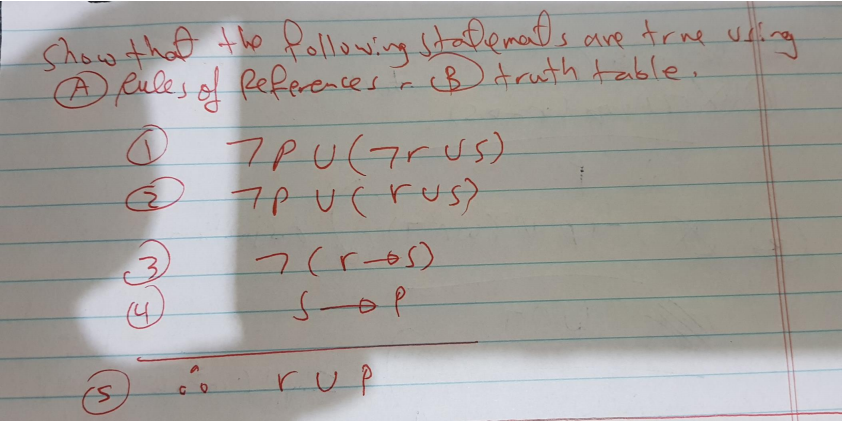 Show that the following statements are true using
(A) Rules of References - (B) truth table.
(1) ¬P ∪ (¬r ∪ s)
(2) ¬P ∪ ( r ∪ s)
(3) ¬ (r → s)
(4) s → P
(5) ∴ r ∪ P